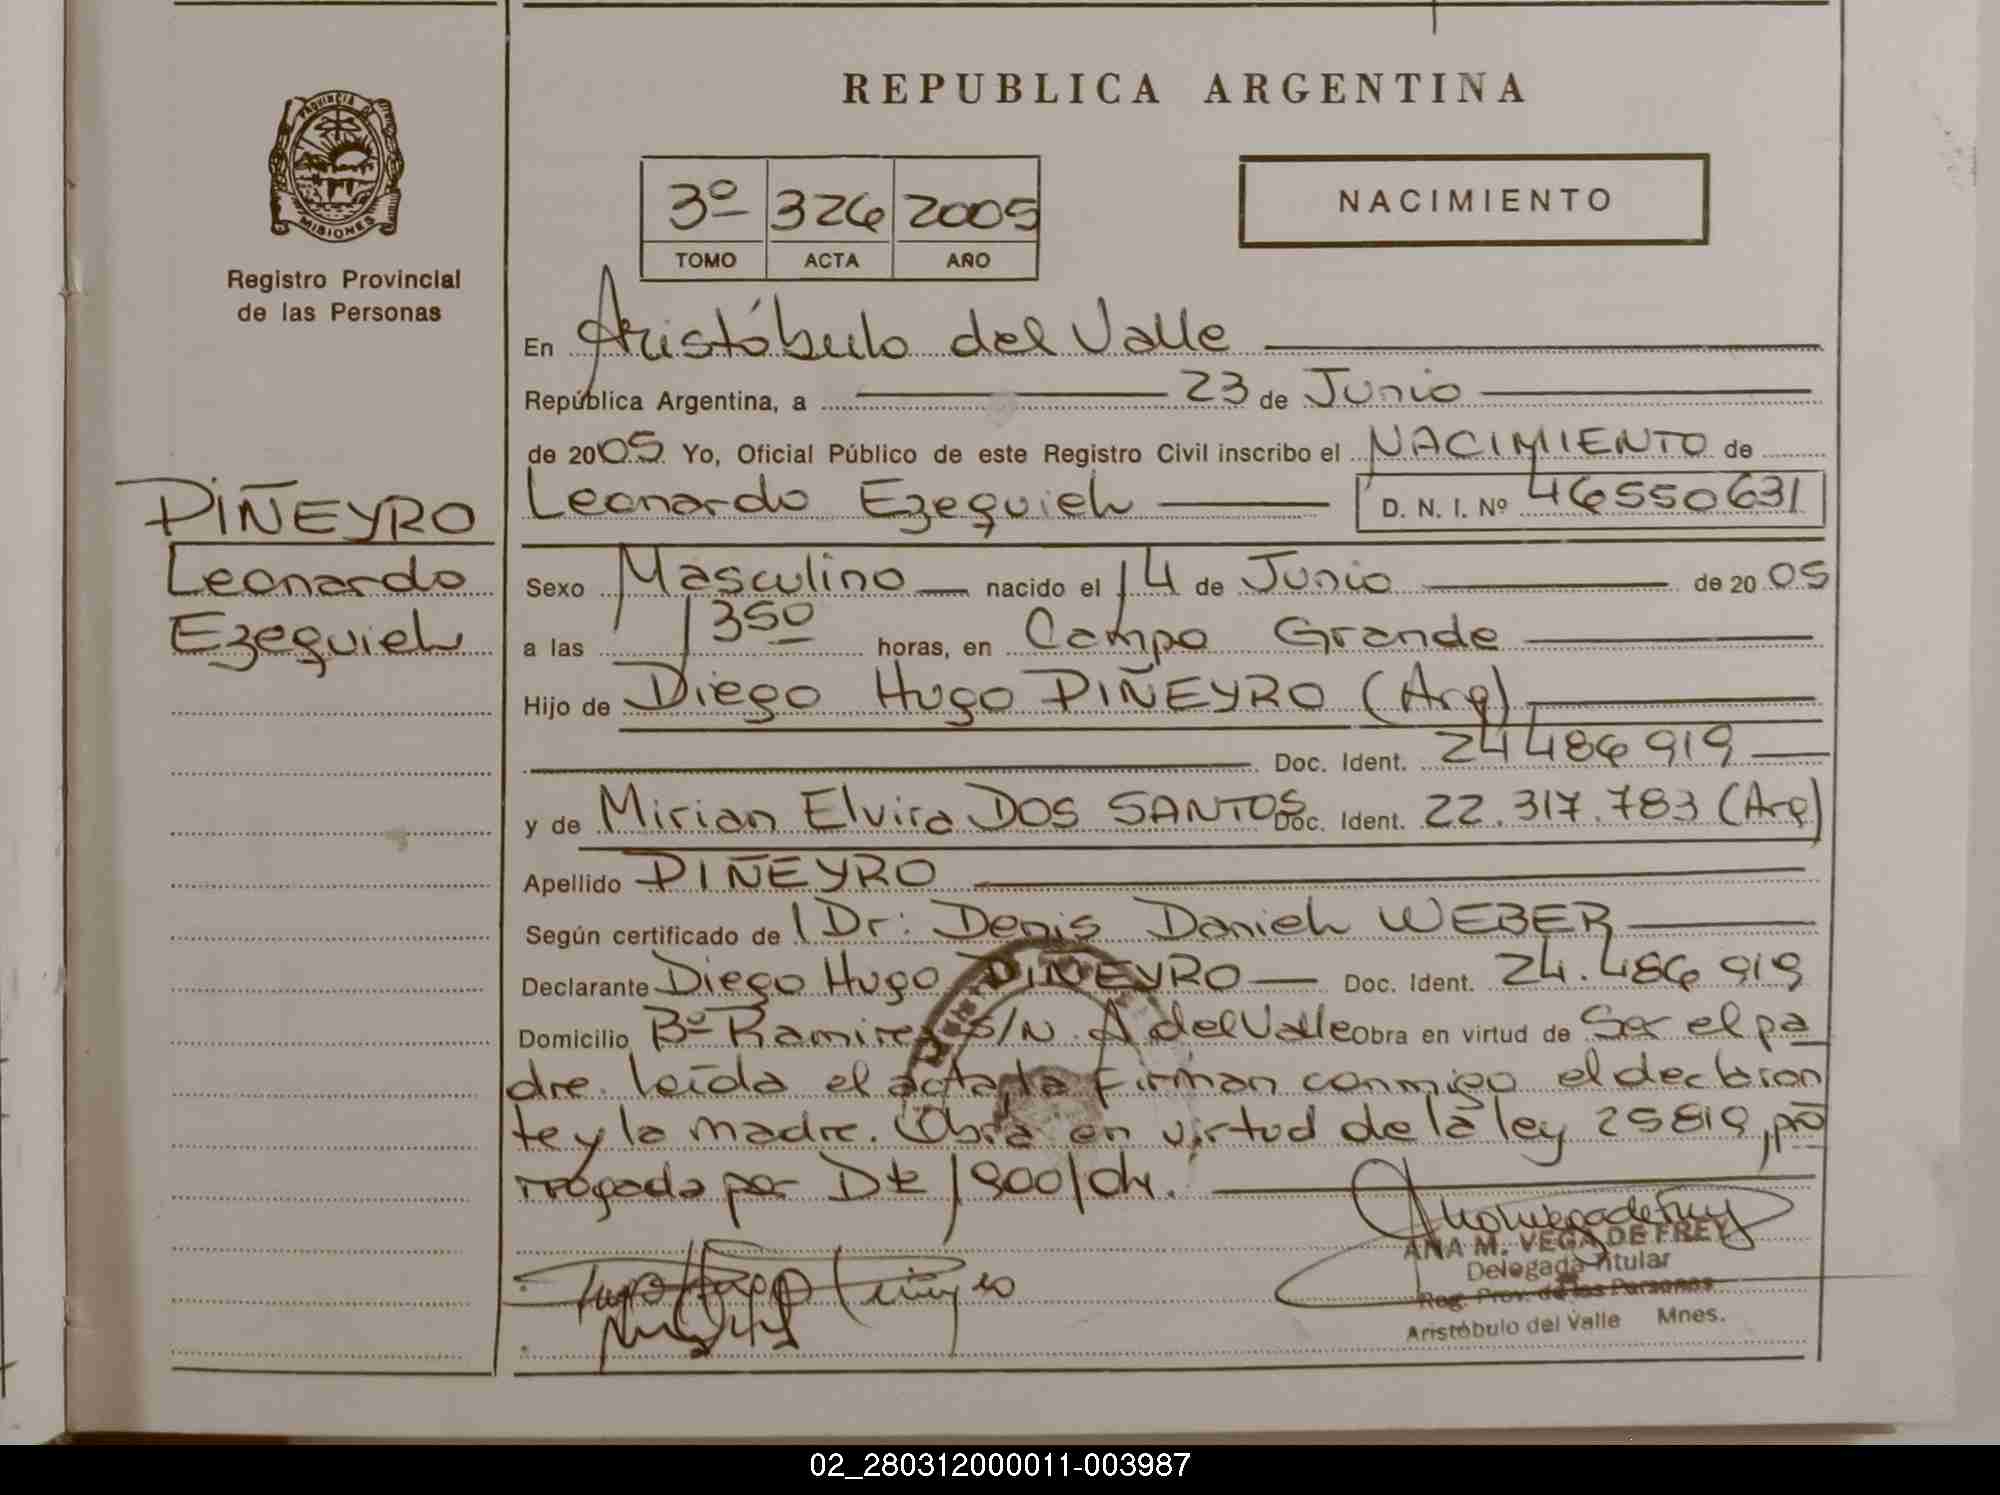 REPUBLICA ARGENTINA
PROVINCIA D
MISIONES
Registro Provincial
de las Personas
3º 326 2005
TOMO ACTA AÑO
NACIMIENTO
En Aristóbulo del Valle
República Argentina, a 23 de Junio
de 2005 Yo, Oficial Público de este Registro Civil inscribo el NACIMIENTO de
Leonardo Ezequiel D. N. I. Nº 46550631
PIÑEYRO
Leonardo
Ezequiel
Sexo Masculino nacido el 14 de Junio de 2005
a las 1350 horas, en Campo Grande
Hijo de Diego Hugo PIÑEYRO (Arg)
Doc. Ident. 24486919
y de Mirian Elvira DOS SANTOS Doc. Ident. 22.317.783 (Arg)
Apellido PIÑEYRO
Según certificado de Dr: Denis Daniel WEBER
Declarante Diego Hugo PIÑEYRO Doc. Ident. 24.486919
Domicilio Bº Ramirez S/N. A del Valle Obra en virtud de Ser el pa
dre. leída el acta, la firman conmigo el declaran
te y la madre. Obra en virtud de la ley 25819, pro
rrogada por Dto 1800/04.
ANA M. VEGA DE FREY
Delegada Titular
Reg. Prov. de las Personas
Aristóbulo del Valle Mnes.
02_280312000011-003987